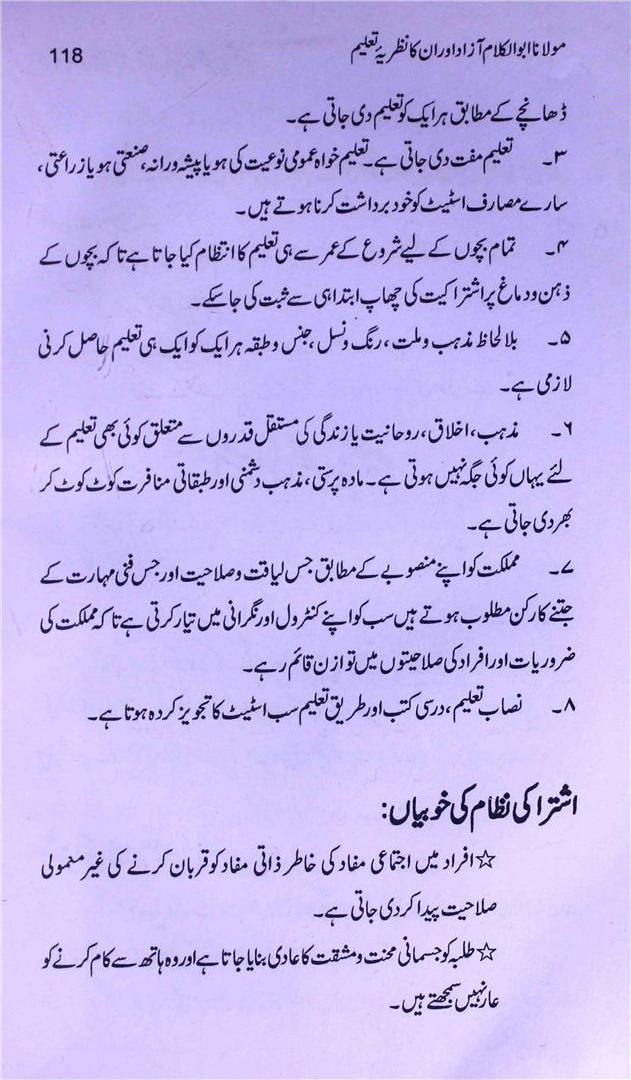 مولانا ابوالکلام آزاد اور ان کا نظریۂ تعلیم 118
ڈھانچے کے مطابق ہر ایک کو تعلیم دی جاتی ہے۔
۳۔ تعلیم مفت دی جاتی ہے۔ تعلیم خواہ عمومی نوعیت کی ہو یا پیشہ ورانہ، صنعتی ہو یا زراعتی،
سارے مصارف اسٹیٹ کو خود برداشت کرنا ہوتے ہیں۔
۴۔ تمام بچوں کے لیے شروع کے عمر سے ہی تعلیم کا انتظام کیا جاتا ہے تاکہ بچوں کے
ذہن و دماغ پر اشتراکیت کی چھاپ ابتدا ہی سے ثبت کی جا سکے۔
۵۔ بلا لحاظ مذہب و ملت، رنگ و نسل، جنس و طبقہ ہر ایک کو ایک ہی تعلیم حاصل کرنی
لازمی ہے۔
۶۔ مذہب، اخلاق، روحانیت یا زندگی کی مستقل قدروں سے متعلق کوئی بھی تعلیم کے
لئے یہاں کوئی جگہ نہیں ہوتی ہے۔ مادہ پرستی، مذہب دشمنی اور طبقاتی منافرت کوٹ کوٹ کر
بھر دی جاتی ہے۔
۷۔ مملکت کو اپنے منصوبے کے مطابق جس لیاقت و صلاحیت اور جس فنی مہارت کے
جتنے کارکن مطلوب ہوتے ہیں سب کو اپنے کنٹرول اور نگرانی میں تیار کرتی ہے تاکہ مملکت کی
ضروریات اور افراد کی صلاحیتوں میں توازن قائم رہے۔
۸۔ نصاب تعلیم، درسی کتب اور طریق تعلیم سب اسٹیٹ کا تجویز کردہ ہوتا ہے۔
اشتراکی نظام کی خوبیاں:
☆ افراد میں اجتماعی مفاد کی خاطر ذاتی مفاد کو قربان کرنے کی غیر معمولی
صلاحیت پیدا کر دی جاتی ہے۔
☆ طلبہ کو جسمانی محنت و مشقت کا عادی بنایا جاتا ہے اور وہ ہاتھ سے کام کرنے کو
عار نہیں سمجھتے ہیں۔